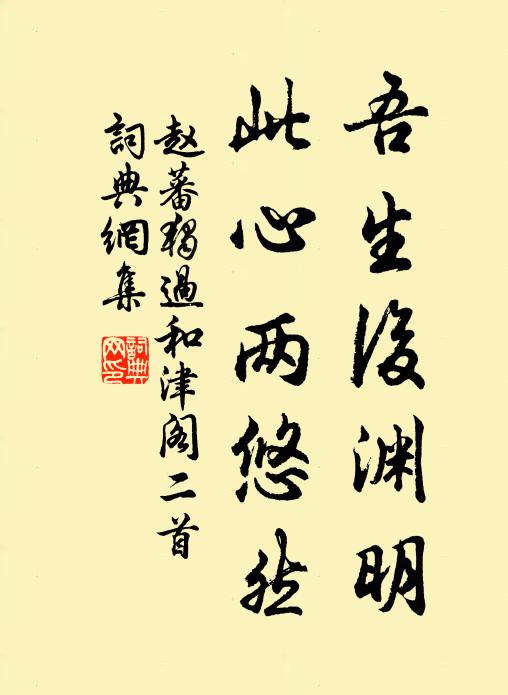 吾生後渊明
此心两悠然
赵蕃独過和津阁二首
詞典網集
詞典网印